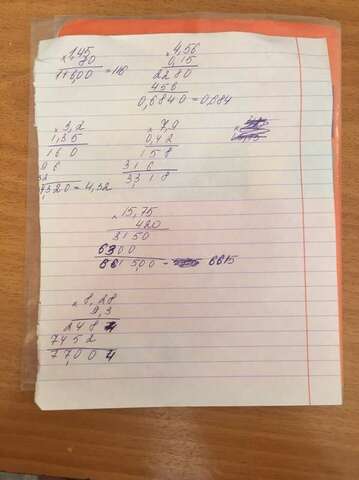 × 1,45
80
11600 = 116
× 4,56
0,15
2280
456
0,6840 = 0,684
× 3,2
1,35
160
96
32
4,320 = 4,32
× 7,9
0,42
158
316
3,318
× 15,75
420
3150
6300
6615,00 - 6615
× 8,28
9,3
2484
7452
77,004